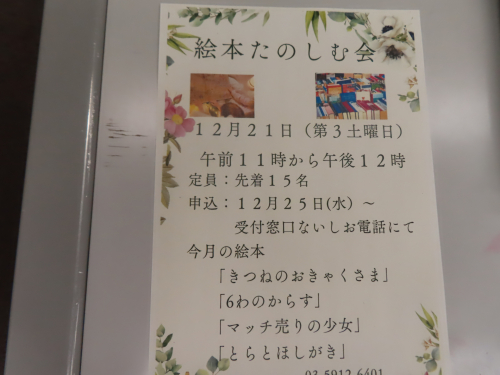 絵本たのしむ会
12月21日（第3土曜日）
午前11時から午後12時
定員：先着15名
申込：12月25日(水）～
受付窓口ないしお電話にて
今月の絵本
「きつねのおきゃくさま」
「6わのからす」
「マッチ売りの少女」
「とらとほしがき」
03-5912-6401